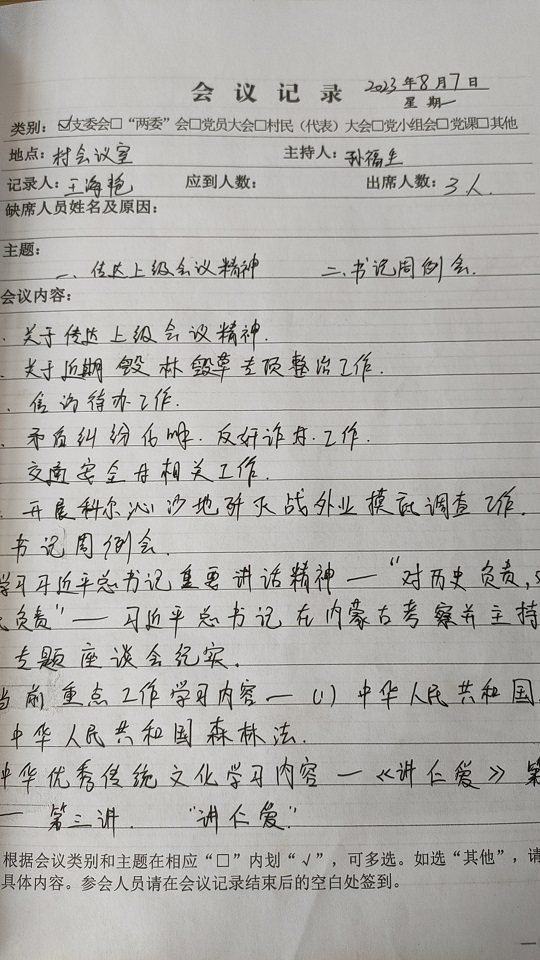 会议记录 2023年8月7日
星期一
类别：☑支委会□“两委”会□党员大会□村民（代表）大会□党小组会□党课□其他
地点：村会议室 主持人：孙福生
记录人：王海艳 应到人数： 出席人数：3人.
缺席人员姓名及原因：
主题：
一、传达上级会议精神 二、书记周例会.
会议内容：
. 关于传达上级会议精神.
. 关于近期毁林毁草专项整治工作.
. 信访待办工作.
. 矛盾纠纷化解.反奸诈母.工作.
交通安全母相关工作.
. 开展科尔沁沙地歼灭战外业摸底调查工作.
书记周例会.
学习习近平总书记重要讲话精神—“对历史负责,
负责”—习近平总书记在内蒙古考察并主持
专题座谈会纪实.
当前重点工作学习内容—(1)中华人民共和国
中华人民共和国森林法.
中华优秀传统文化学习内容—《讲仁爱》第
一 第三讲. “讲仁爱.”
根据会议类别和主题在相应“□”内划“√”，可多选。如选“其他”，请
具体内容。参会人员请在会议记录结束后的空白处签到。